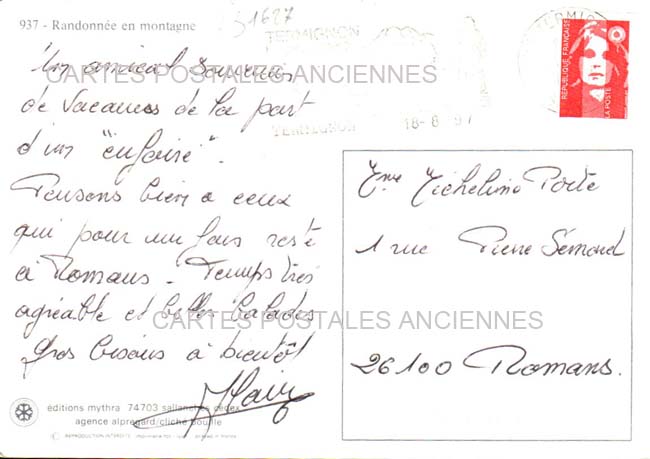 937 - Randonnée en montagne
31627
TERMIGNON
TERMIGNON
18-8-97
REPUBLIQUE FRANÇAISE
LA POSTE
Un amical souvenir
CARTES POSTALES ANCIENNES
de Vacances de la part
d'un "enfoiré".
Pensons bien a ceux
qui pour une fois reste
à Romans. Temps très
agréable et belles balades
CARTES POSTALES ANCIENNES
Gros bisous à bientôt
Mme Micheline Porte
1 rue Pierre Sémard
26100 Romans.
éditions mythra 74703 sallanches cedex
agence alpregard/cliché bouille
REPRODUCTION INTERDITE